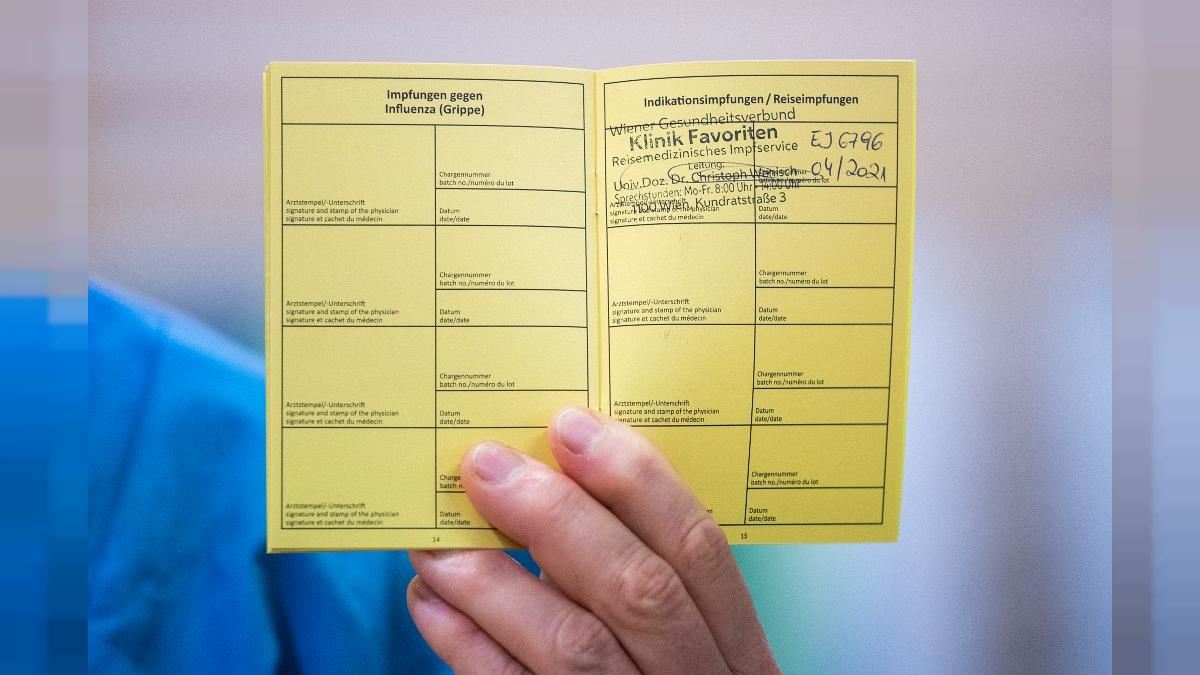 Impfungen gegen
Influenza (Grippe)
Chargennummer
batch no./numéro du lot
Arztstempel/-Unterschrift
signature and stamp of the physician
signature et cachet du médecin
Datum
date/date
Chargennummer
batch no./numéro du lot
Arztstempel/-Unterschrift
signature and stamp of the physician
signature et cachet du médecin
Datum
date/date
Chargennummer
batch no./numéro du lot
Arztstempel/-Unterschrift
signature and stamp of the physician
signature et cachet du médecin
Datum
date/date
Charge
batch n
Arztstempel/-Unterschrift
signature and stamp of the physician
signature et cachet du médecin
Datum
date/date
14
Indikationsimpfungen / Reiseimpfungen
Wiener Gesundheitsverbund
Klinik Favoriten
Reisemedizinisches Impfservice
Leitung:
Univ.Doz. Dr. Christoph
Sprechstunden: Mo-Fr. 8:00 Uhr - 14:00 Uhr
1100 Wien, Kundratstraße 3
EJ6796
04/2021
signature and stamp of the physician
signature et cachet du médecin
Datum
date/date
Chargennummer
batch no./numéro du lot
Arztstempel/-Unterschrift
signature and stamp of the physician
signature et cachet du médecin
Datum
date/date
Chargennummer
batch no./numéro du lot
Arztstempel/-Unterschrift
signature and stamp of the physician
signature et cachet du médecin
Datum
date/date
Chargennummer
batch no./numéro du lot
Datum
date/date
15